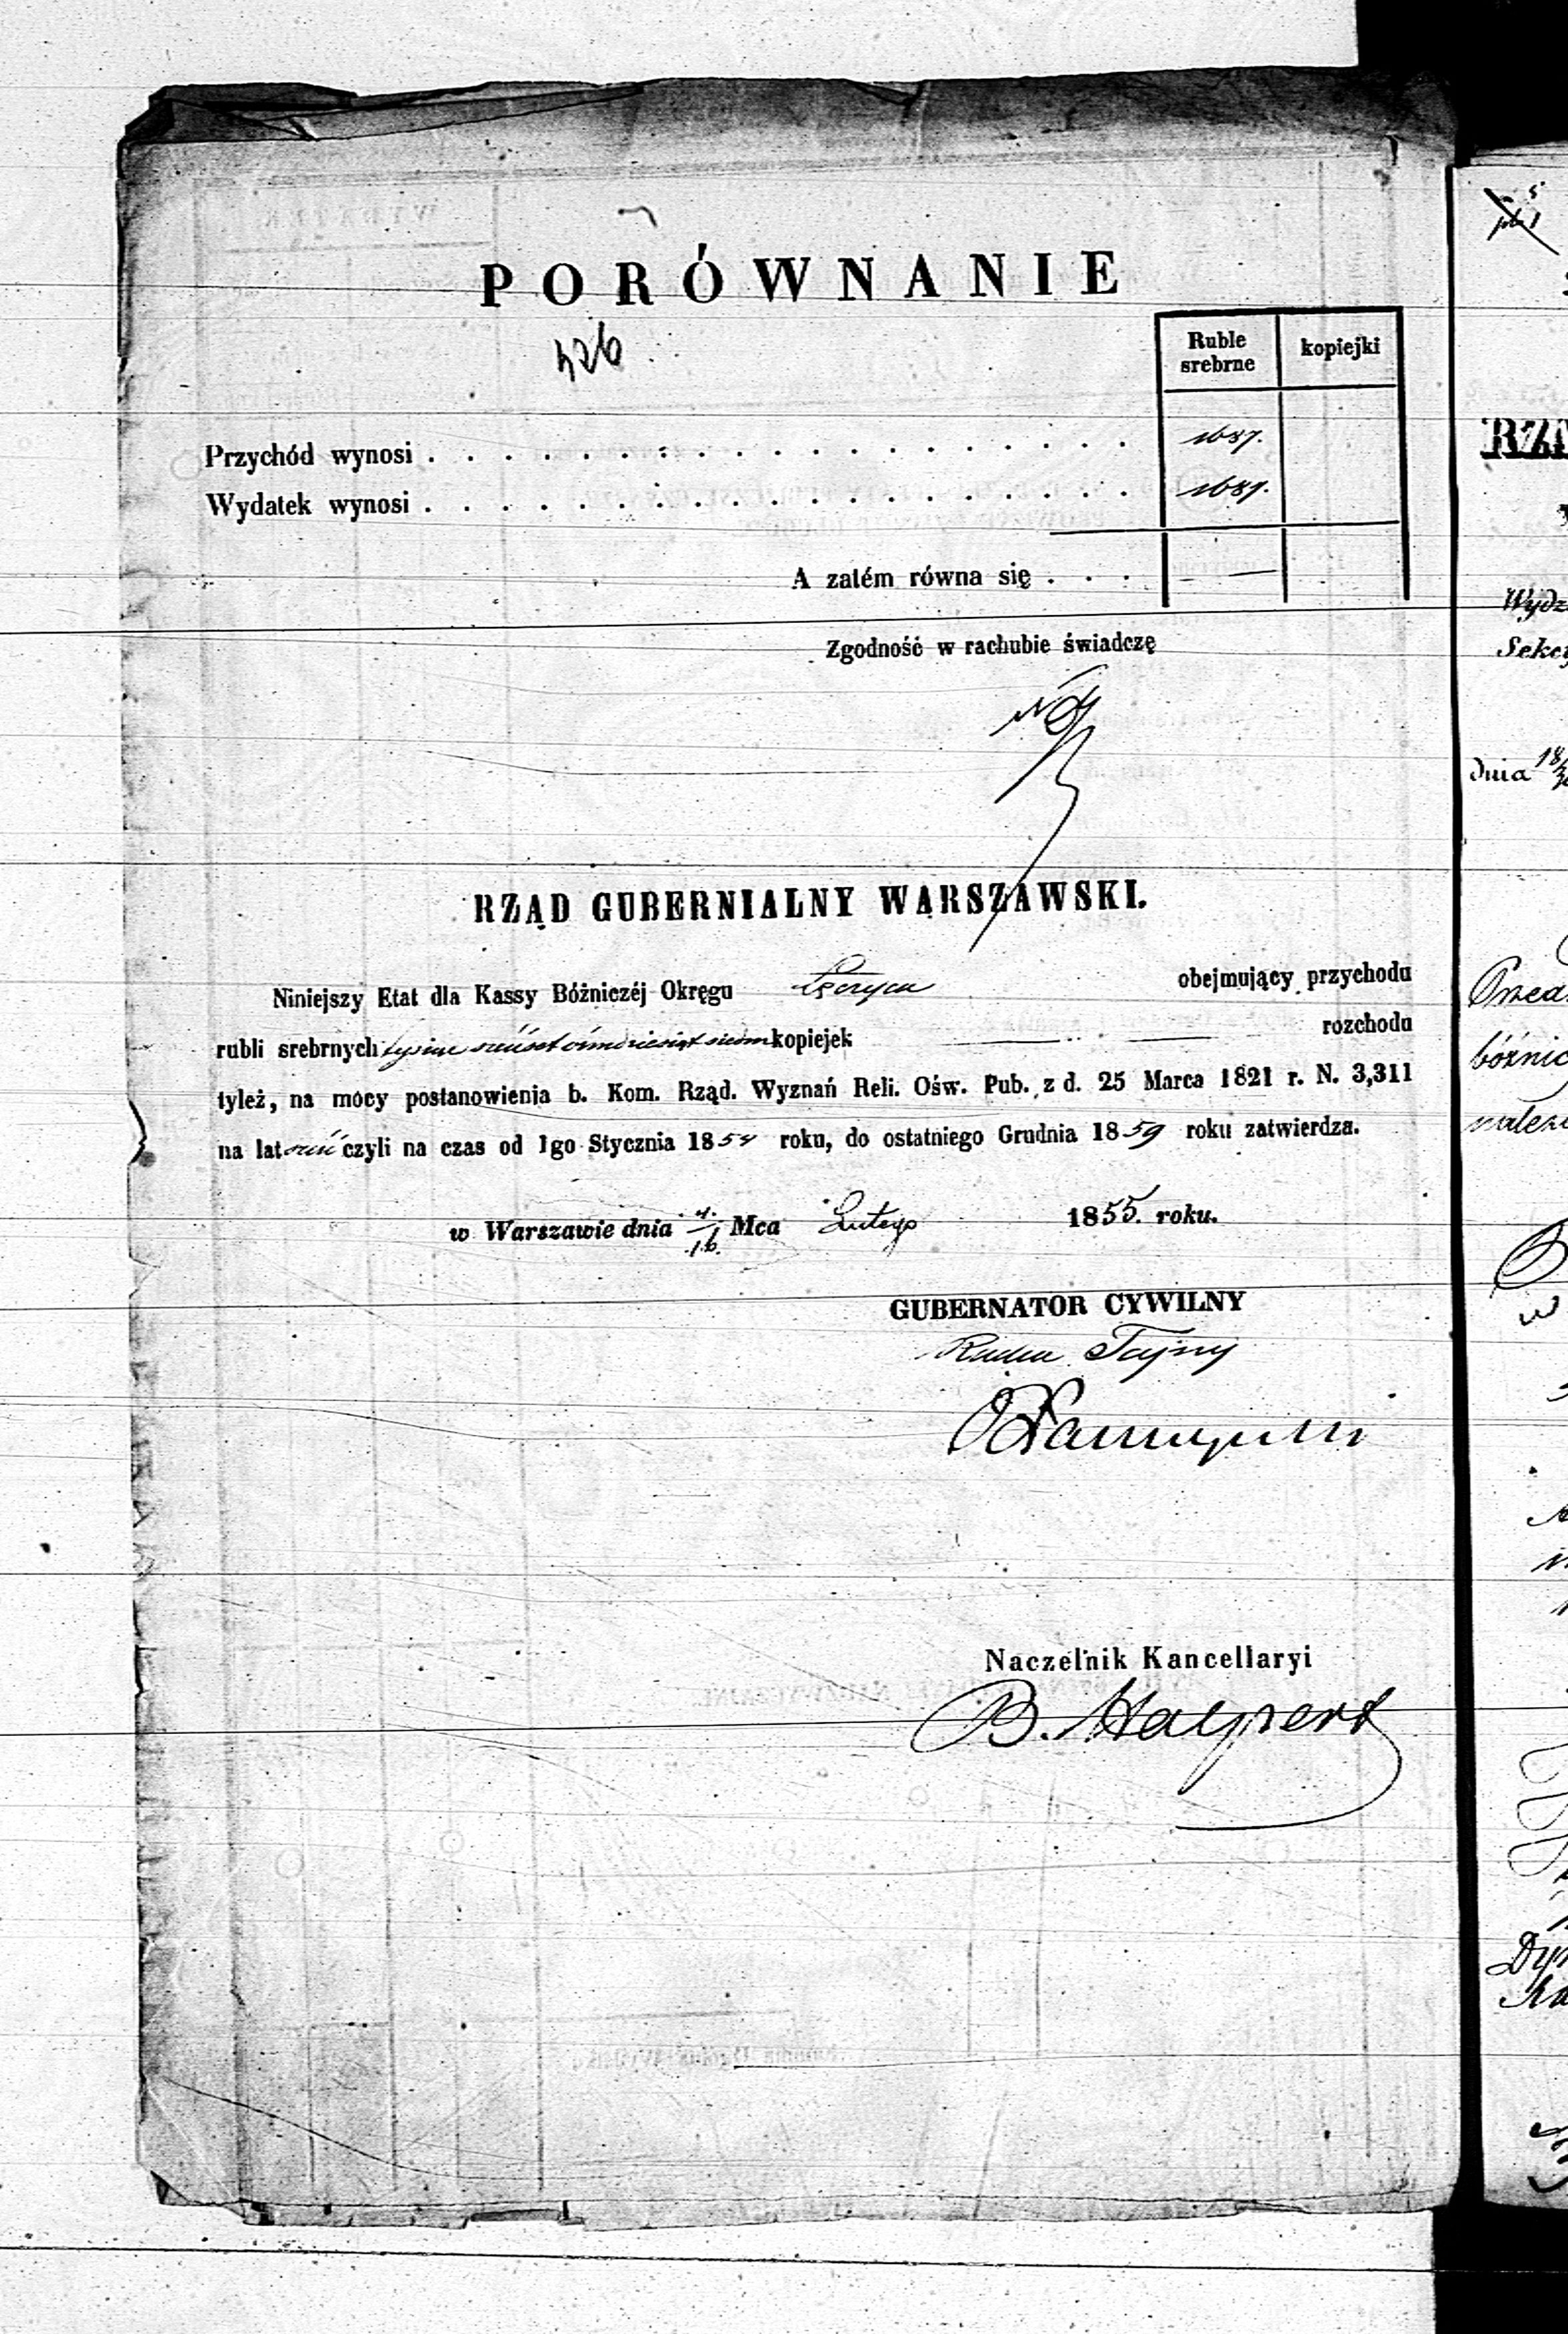 PORÓWNANIE
426
Ruble srebrne kopiejki
Przychód wynosi . . . . . . . . . . . . . . . . . . . 1687.
Wydatek wynosi . . . . . . . . . . . . . . . . . . . 1687.
A zatém równa się . . . — —
Zgodność w rachubie świadczę
RZĄD GUBERNIALNY WARSZAWSKI.
Niniejszy Etat dla Kassy Bóżniczéj Okręgu Łęczyca obejmujący przychodu
rubli srebrnych tysiąc sześćset ośmdziesiąt siedm kopiejek — — rozchodu
tyleż, na mocy postanowienia b. Kom. Rząd. Wyznań Reli. Ośw. Pub. z d. 25 Marca 1821 r. N. 3,311
na lat sześć czyli na czas od 1go Stycznia 1854 roku, do ostatniego Grudnia 1859 roku zatwierdza.
w Warszawie dnia 4/16 Mca Lutego 1855. roku.
GUBERNATOR CYWILNY
Radca Tajny
Naczelnik Kancellaryi
B. Halpert
RZĄ
Wydz
Sekc
dnia 18/30
bóżnic